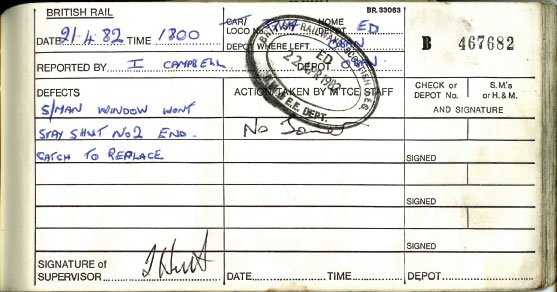 BR.33063
BRITISH RAIL
DATE 21.4.82 TIME 1800
CAR/ LOCO No. HOME DEPOT ED
DEPOT WHERE LEFT OBN
B 467682
REPORTED BY I CAMPBELL DEPOT OBN
DEFECTS
ACTION TAKEN BY M'TCE STAFF
CHECK or DEPOT No.
S.M's or H. & M.
AND SIGNATURE
S/MAN WINDOW WONT
STAY SHUT No2 END.
CATCH TO REPLACE
No
BRITISH RAILWAYS
ED
22 APR 1982
M. & E.E. DEPT.
SIGNED
SIGNED
SIGNED
SIGNED
SIGNATURE of SUPERVISOR
DATE TIME DEPOT